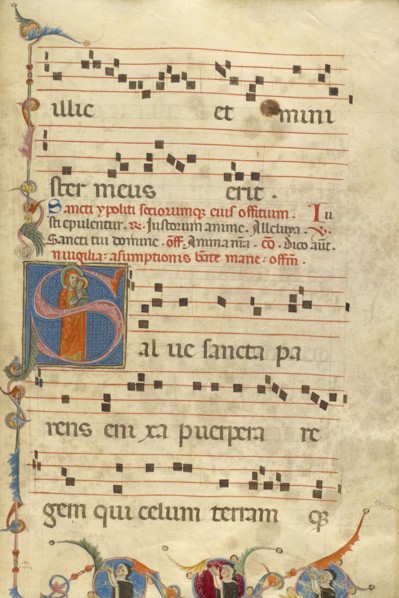 illic et mini
ster meus erit .
Sancti ypoliti sociorumq; eius offitium . Iu
sti epulentur . ℟. Iustorum anime . Alleluya . ℣.
Sancti tui domine . off. Anima nr̄a . cō. Dico aūt.
In uigilia assumptionis bāte marie . offm̄.
Sal ue sancta pa
rens eni xa puerpera re
gem qui celum terram q;